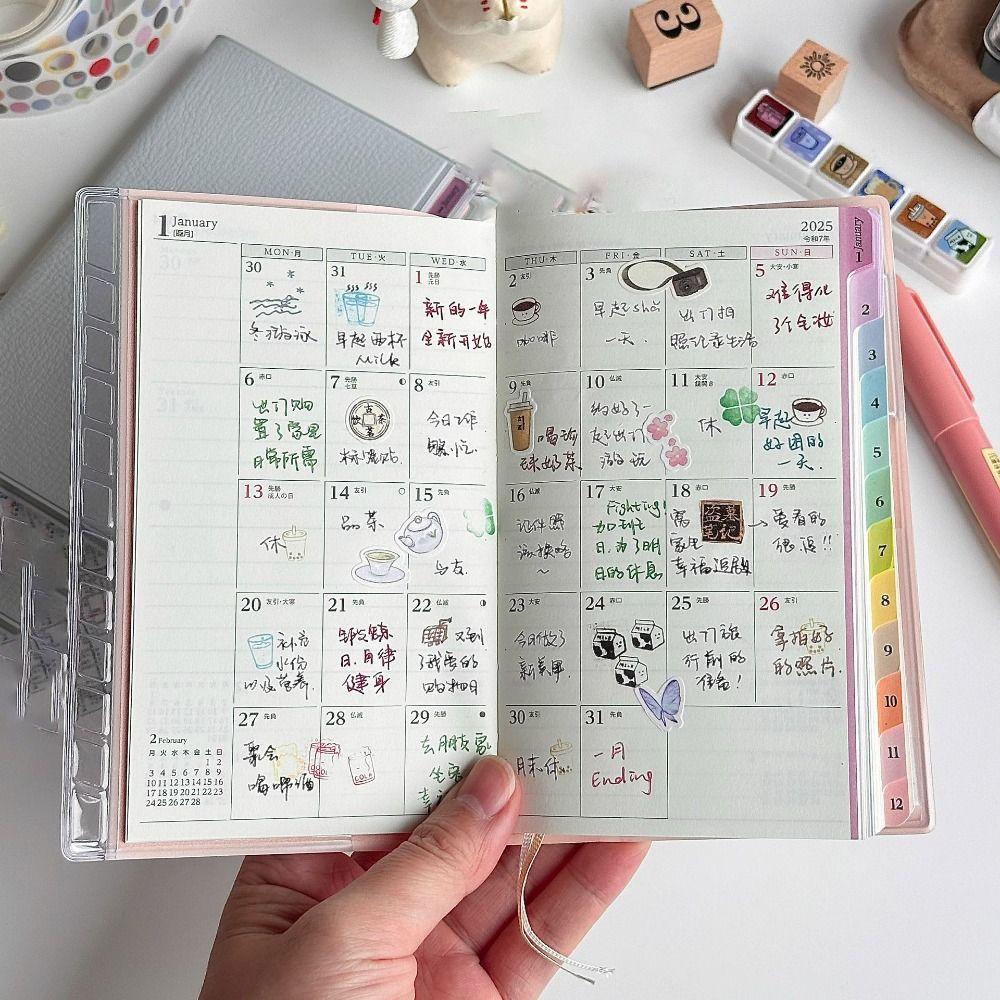 1 January
[睦月]
2025
令和7年
MON·月 TUE·火 WED·水 THU·木 FRI·金 SAT·土 SUN·日
30
冬游泳
31
早起两杯
Milk
1 先勝
元日
新的一年
全新开始
2 友引
咖啡
3 先負
早起
一天.
出门拍
照纪录生活
5 大安·小寒
难得化
了个全妆
6 赤口
出门购
置了家里
日常所需
7 先勝
七草
古
飲 茶
茗
8 友引
今日工作
繁忙.
9 先負
喝珍
珠奶茶
10 仏滅
约好了一
起出门
游玩
11 大安
鏡開き
休
12 赤口
早起
好困的
一天.
13 先勝
成人の日
休
14 友引
品茶
15 先負
与友.
16 仏滅
证件照
该换咯
~
17 大安
Fighting!
加班
日.为了明
日的休息
18 赤口
窝
家里
幸福追剧
盗墓
笔记
19 先勝
→爱看的
很浪!!
20 友引·大寒
补充
水份
以及营养.
21 先負
锻炼
日.自律
健身
22 仏滅
又到
了我爱的
日
23 大安
今日做了
新美甲
24 赤口
MILK
MILK
MILK
25 先勝
出门旅
行前的
准备!
26 友引
拿拍好
的照片.
27 先負
聚会
喝啤酒
28 仏滅
COLA
29 先勝
去朋友家
30 友引
月末休
31 先負
一月
Ending
2 February
月 火 水 木 金 土 日
1 2
3 4 5 6 7 8 9
10 11 12 13 14 15 16
17 18 19 20 21 22 23
24 25 26 27 28
January
1
2
3
4
5
6
7
8
9
10
11
12
3